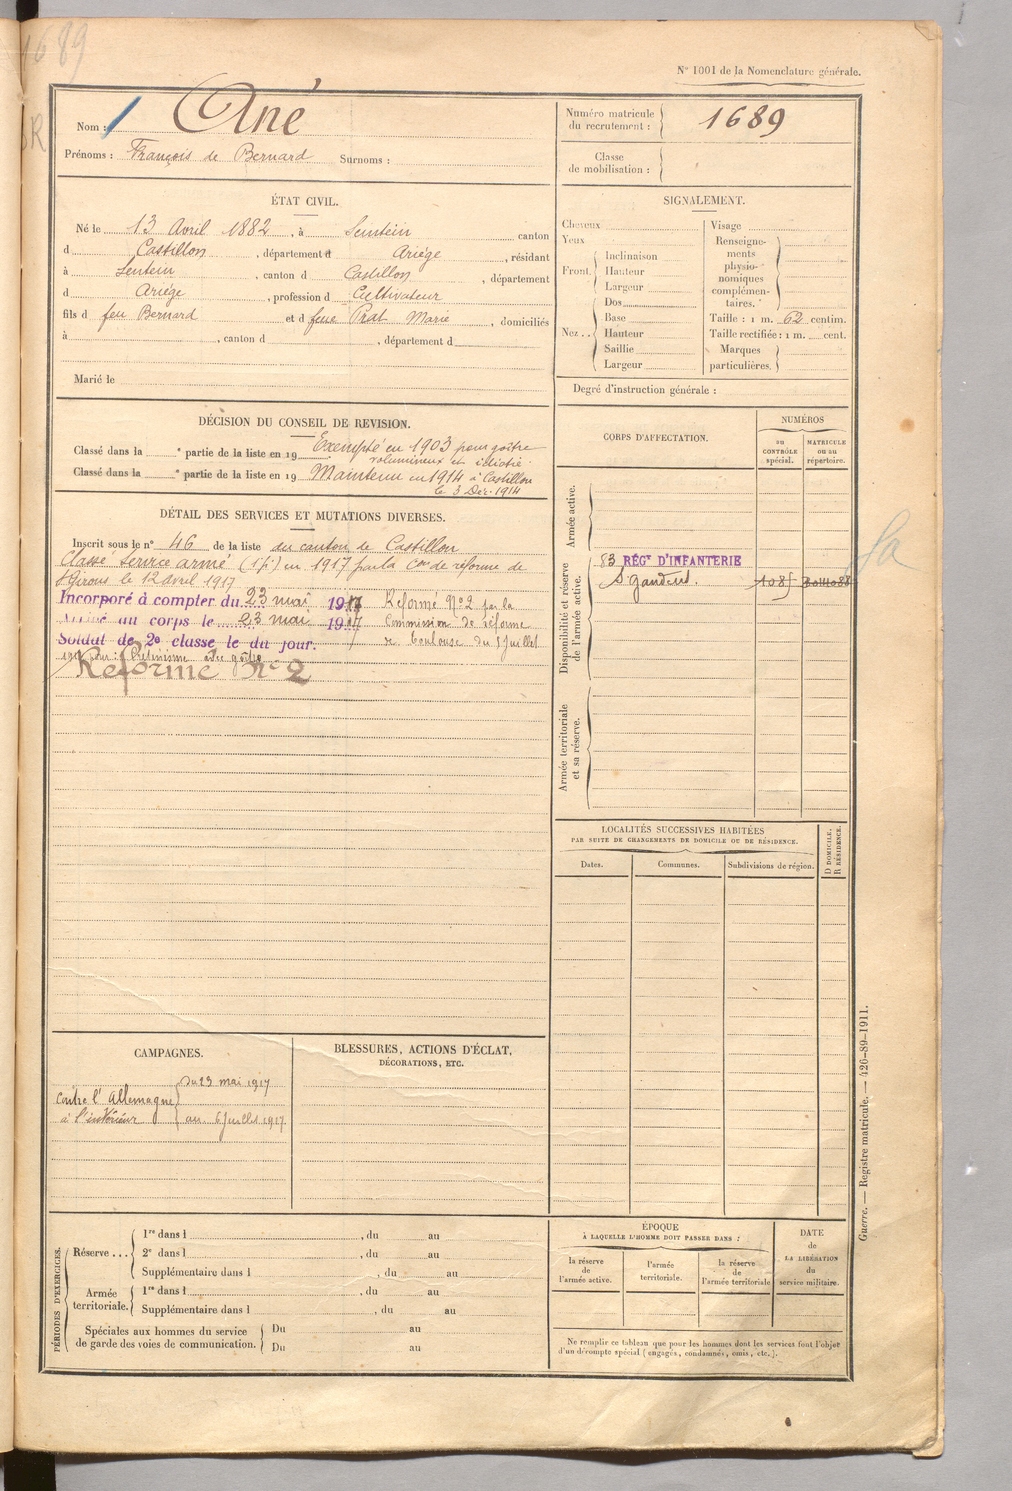 1689
N° 1001 de la Nomenclature générale.
Nom : Ané
Prénoms : François de Bernard Surnoms :
Numéro matricule du recrutement : 1689
Classe de mobilisation :
ÉTAT CIVIL.
Né le 13 Avril 1882, à Sentein canton
d Castillon, département d Ariège, résidant
à Sentein, canton d Castillon, département
d Ariège, profession d Cultivateur
fils d feu Bernard et d feue Prat Marie, domiciliés
à , canton d , département d
Marié le
SIGNALEMENT.
Cheveux
Yeux
Front. Inclinaison
Hauteur
Largeur
Nez .. Dos
Base
Hauteur
Saillie
Largeur
Visage
Renseignements physionomiques complémentaires.
Taille : 1 m. 62 centim.
Taille rectifiée : 1 m. cent.
Marques particulières.
Degré d'instruction générale :
DÉCISION DU CONSEIL DE REVISION.
Classé dans la e partie de la liste en 19 Exempté en 1903 pour goître
volumineux et idiotie
Classé dans la e partie de la liste en 19 Maintenu en 1914 à Castillon
le 3 Déc. 1914
DÉTAIL DES SERVICES ET MUTATIONS DIVERSES.
Inscrit sous le n° 46 de la liste du canton de Castillon
Classé Service armé (1 pi) en 1917 par la Con de réforme de
St Girons le 12 avril 1917
Incorporé à compter du 23 mai 1917 Réformé N° 2 par la
Arrivé au corps le 23 mai 1917 Commission de réforme
Soldat de 2e classe le du jour. de Toulouse du 5 Juillet
1917 pour : Crétinisme avec goître
Réformé N° 2
CORPS D'AFFECTATION.
NUMÉROS
au CONTRÔLE spécial.
MATRICULE ou au répertoire.
Armée active.
Disponibilité et réserve de l'armée active.
83 RÉGt D'INFANTERIE
St Gaudens.
Armée territoriale et sa réserve.
LOCALITÉS SUCCESSIVES HABITÉES
PAR SUITE DE CHANGEMENTS DE DOMICILE OU DE RÉSIDENCE.
Dates.
Communes.
Subdivisions de région.
D DOMICILE.
R RÉSIDENCE.
CAMPAGNES.
contre l'Allemagne
à l'intérieur
du 23 mai 1917
au 6 Juillet 1917
BLESSURES, ACTIONS D'ÉCLAT,
DÉCORATIONS, ETC.
PÉRIODES D'EXERCICES.
Réserve ... 1re dans l , du au
2e dans l , du au
Supplémentaire dans l , du au
Armée territoriale. 1re dans l , du au
Supplémentaire dans l , du au
Spéciales aux hommes du service
de garde des voies de communication.
Du au
Du au
ÉPOQUE
À LAQUELLE L'HOMME DOIT PASSER DANS :
la réserve de l'armée active.
l'armée territoriale.
la réserve de l'armée territoriale
DATE
de
LA LIBÉRATION
du
service militaire.
Ne remplir ce tableau que pour les hommes dont les services font l'objet
d'un décompte spécial (engagés, condamnés, omis, etc.).
Guerre. — Registre matricule. — 426-89-1911.